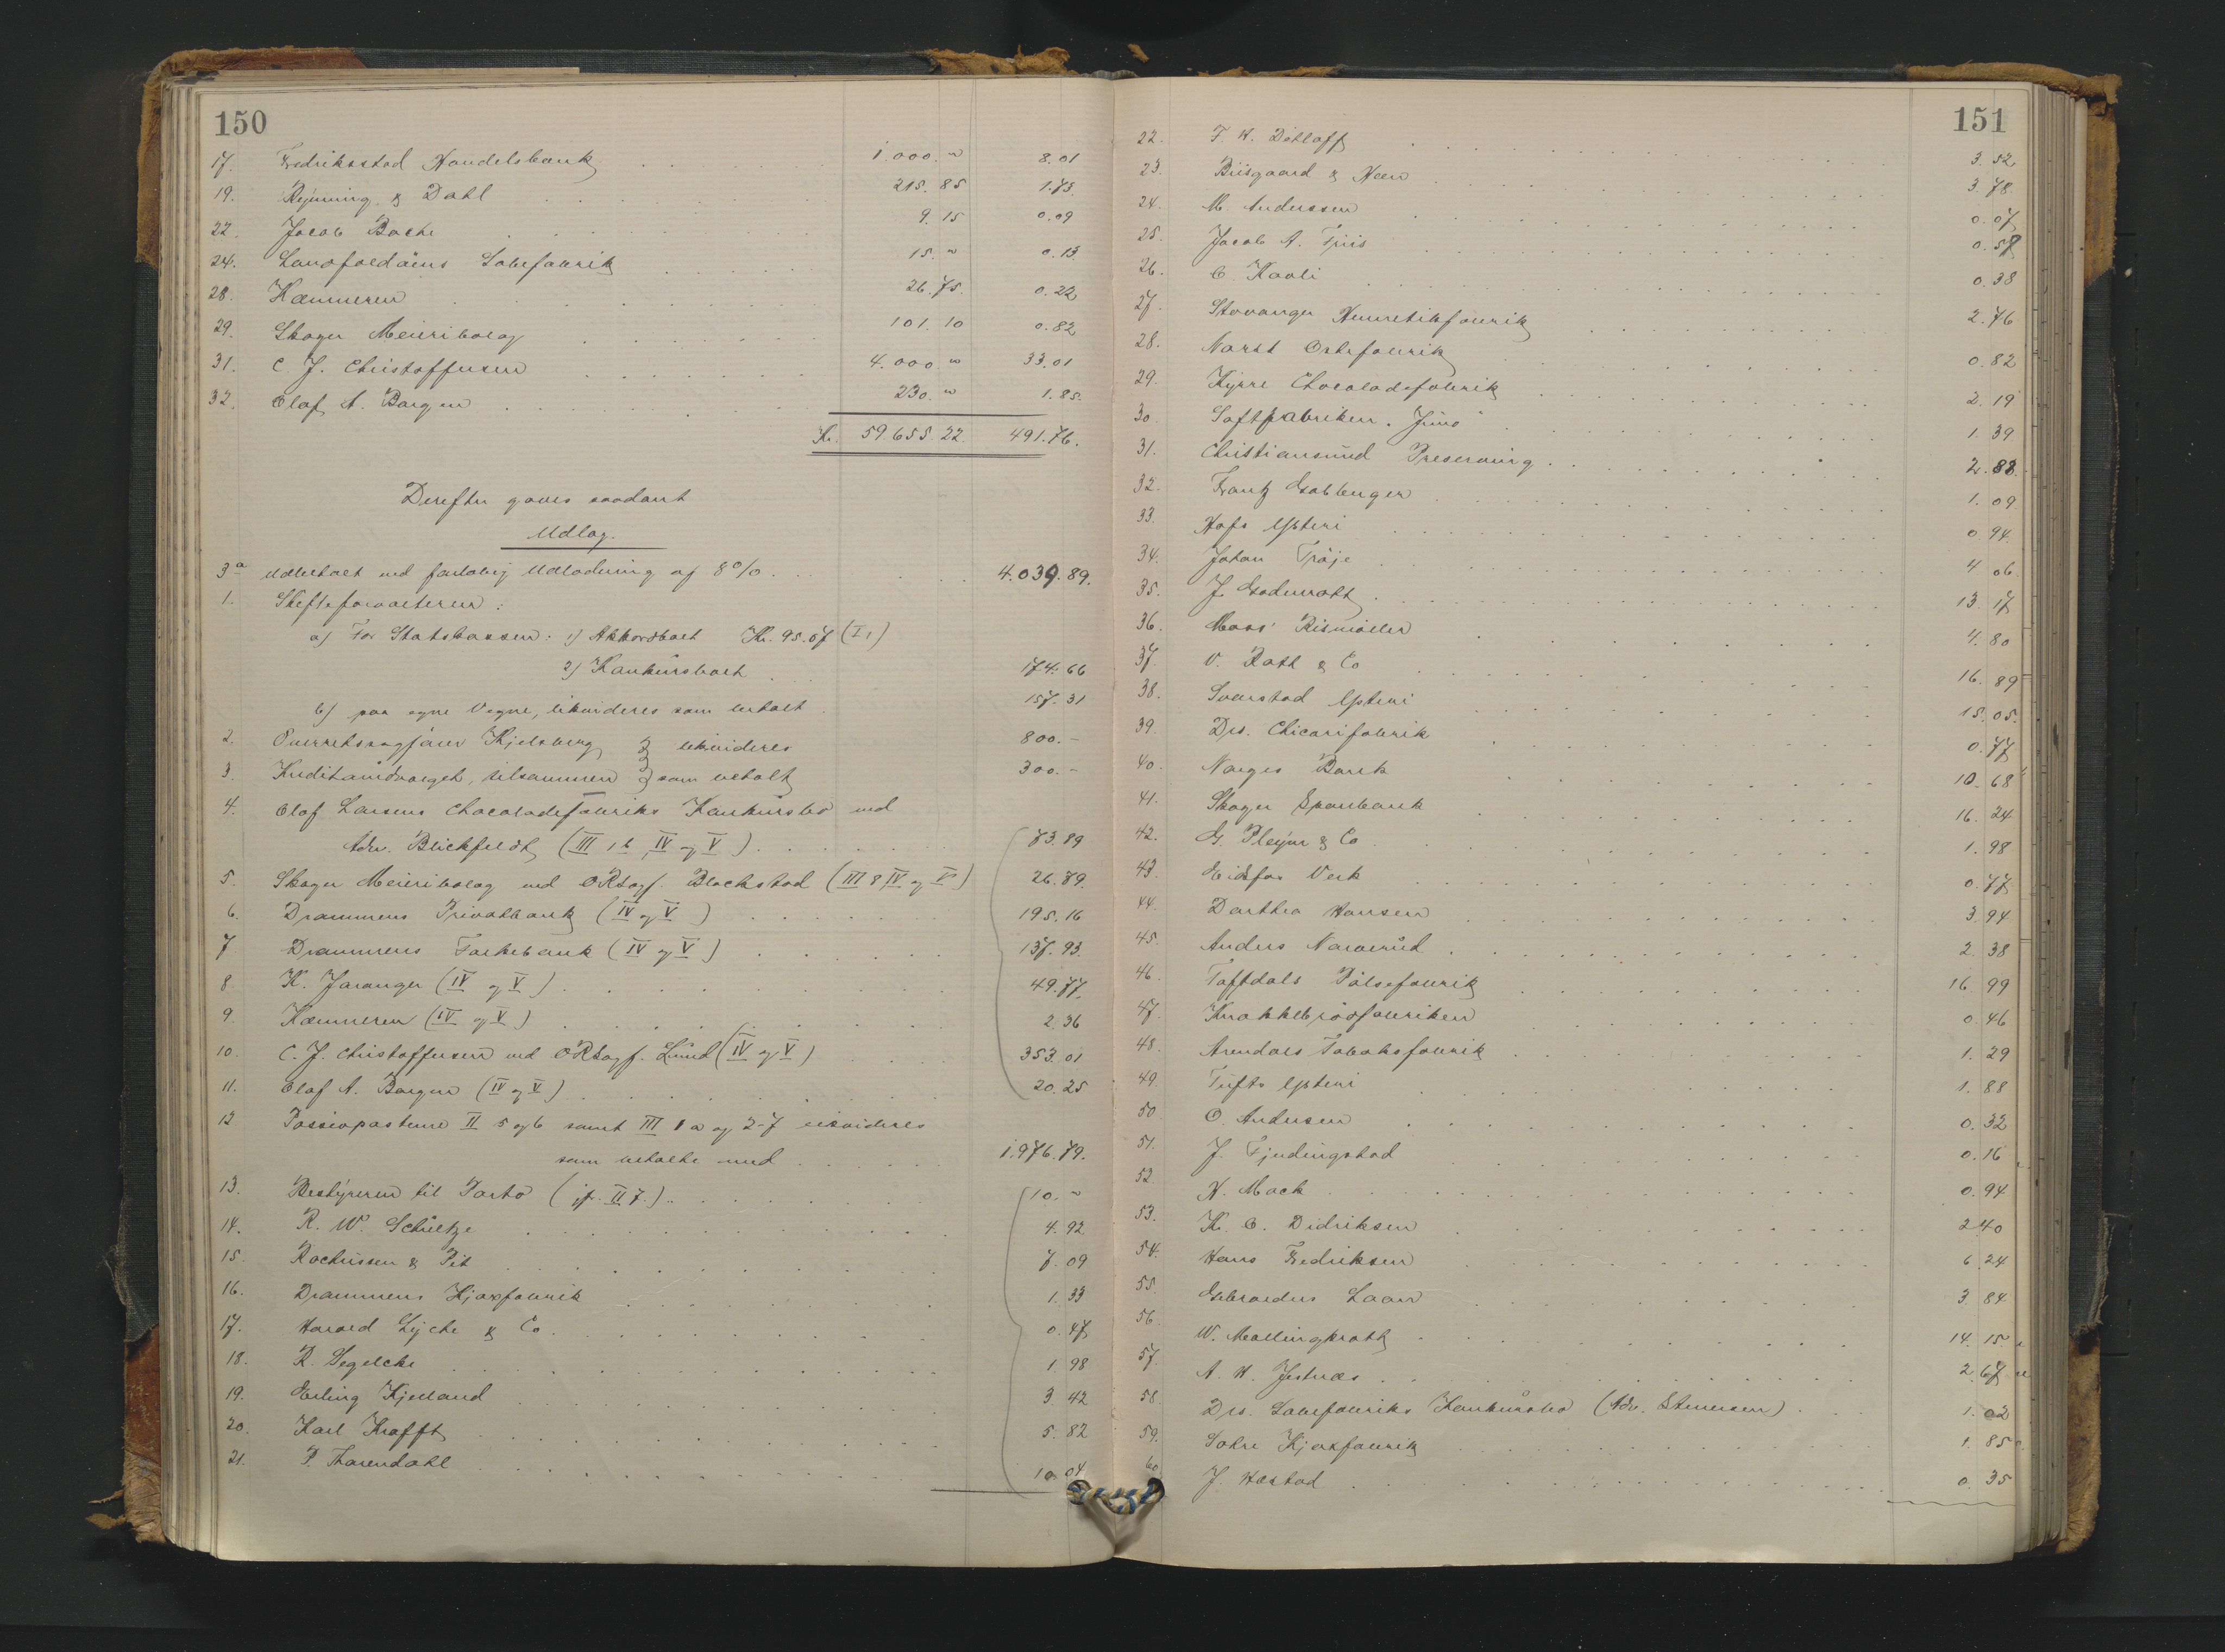 150
17. Fredriksstad Handelsbank 1.000. " 8.01
19. Rejning & Dahl 215.85 1.73.
22. Jacob Bache 9.15 0.09
24. Sæbefabrik 15. " 0.13
28. Kæmneren 26.75. 0.22
29. Skoger Meieribolag 101.10 0.82
31. C. J. Christoffersen 4.000. " 33.01
32. Olaf A. Borgen 230. " 1.85.
Kr. 59.655.22. 491.76.
Derefter gaves saadant
Udlæg.
3a Udbetalt ved foreløbig Udlodning af 8% 4.039.89.
1. Skifteforvalteren:
a) For Statskassen: 1) Akkordboet Kr. 95.07 (I,)
2) Konkursboet 174.66
b) paa egne Vegne, likvideres som betalt 157.31
2. Overretssagfører Kjelsberg } likvideres 800.-
3. Kreditorudvalget, tilsammen } som betalt 300.-
4. Olaf Larsens Chocoladefabriks Konkursbo ved
Adv. Blickfeldt (III 1b, IV og V) 73.89
5. Skoger Meieribolag ved ORSagf. Blockstad (III 8 IV og V) 26.79.
6. Drammens Privatbank (IV og V) 195.16
7 Drammens Folkebank (IV og V) 137.93.
8. K. Joranger (IV og V) 49.77.
9. Kæmneren (IV og V) 2.36
10. C. J. Christoffersen ved ORSagf. Lund (IV og V) 353.01
11. Olaf A. Borgen (IV og V) 20.25
12 Passivposterne II 5 og 6 samt III 1a og 2-7 likvideres
som betalte med 1.976.79.
13. Bestyreren til Porto (jf. II 7.) 10. "
14. R. W. Schultze 4.92
15. Rochussen & Pit 7.09
16. Drammens Kjoxfabrik 1.33
17. Harald Lyche & Co. 0.47
18. R. Segelcke 1.98
19. Erling Kjelland 3.42
20. Karl Krafft 5.82
21. P. Thorendahl 10.04
151
22. F. W. Dethloff 3.52
23. Biisgaard & Heen 3.78.
24. M. Anderssen 0.07
25. Jacob A. Friis 0.57
26. O. Kavli 0.38
27. Stavanger Hermetikfabrik 2.76
28. Norsk Ostefabrik 0.82
29. Kyrre Chocoladefabrik 2.19
30 Saftfabriken "Juno" 1.39
31. Christiansund Preserving 2.88.
32. Frantz 1.09
33. Hofs Ysteri 0.94.
34. Johan Trøje 4.06.
35. J. 13.17
36. Moss Rismøller 4.80
37. V. Roll & Co 16.89
38. Svarstad Ysteri 15.05.
39. Drs. Chicorifabrik 0.77
40. Norges Bank 10.68
41. Skoger Sparebank 16.24
42. G. Pleym & Co 1.98
43. Eidsfos Verk 0.77
44. Dorthea Hansen 3.94
45. Anders Narverud 2.38
46. Toftdals Pølsefabrik 16.99
47. Knækkebrødfabriken 0.46
48. Arendals Tobaksfabrik 1.29
49. Tufts Ysteri 1.88
50. O. Andersen 0.32
51. J. Fjerdingstad 0.16
52. H. Mack 0.94
53. K. O. Didriksen 2.40
54. Hans Fredriksen 6.24
55. Gebroeders Laan 3.84
56. W. Mollingkrott 14.15
57. A. H. Jestnæs 2.67
58. Drs. Sæbefabriks Konkursbo (Adv. Stenersen) 1.02
59. Solre Kjoxfabrik 1.85
60. J. Hæstad 0.35